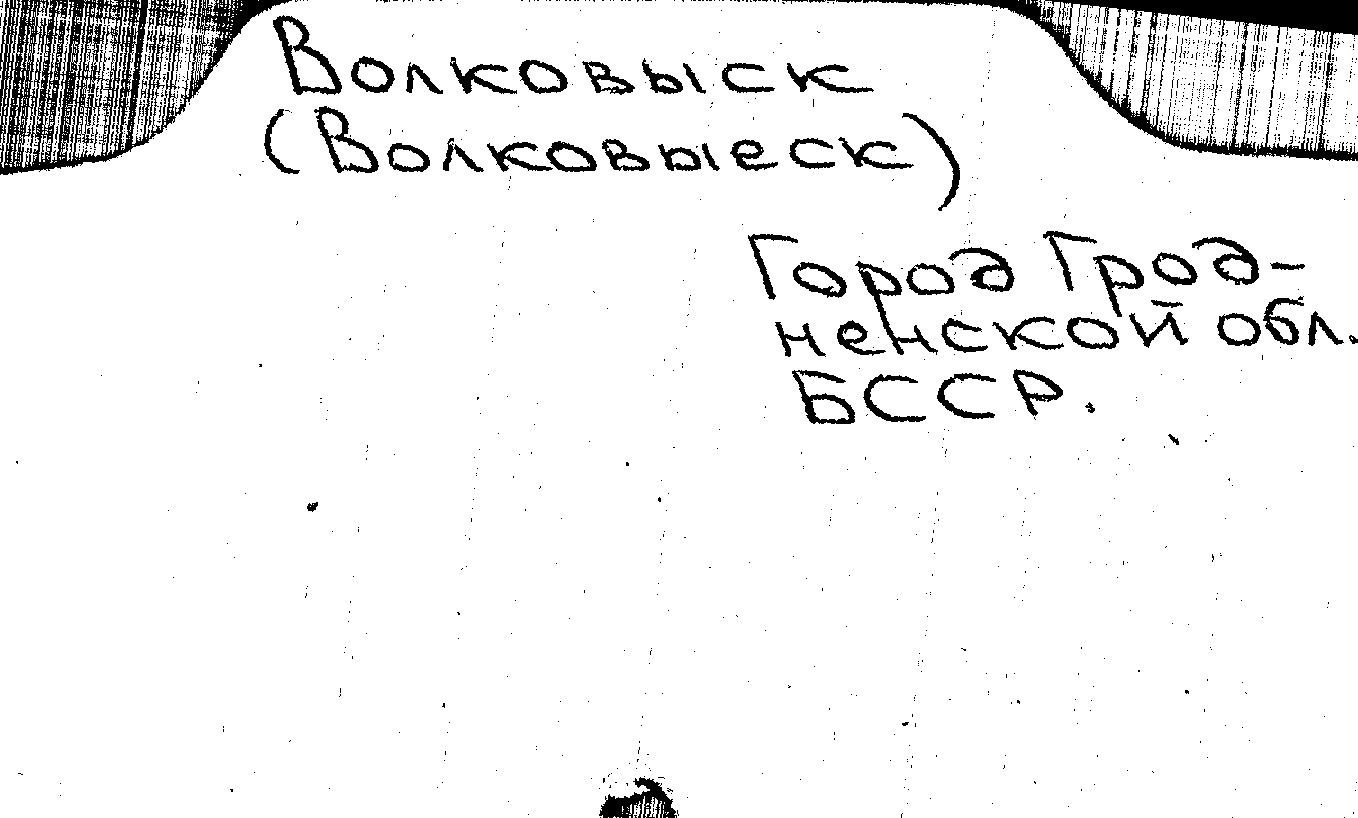 Волковыск
(Волковыеск)
Город Грод-
ненской обл.
БССР.